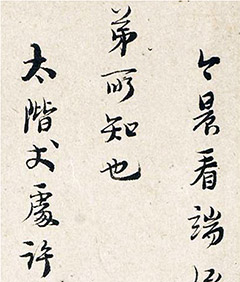 今晨看端
弟所知也
太階丈處許